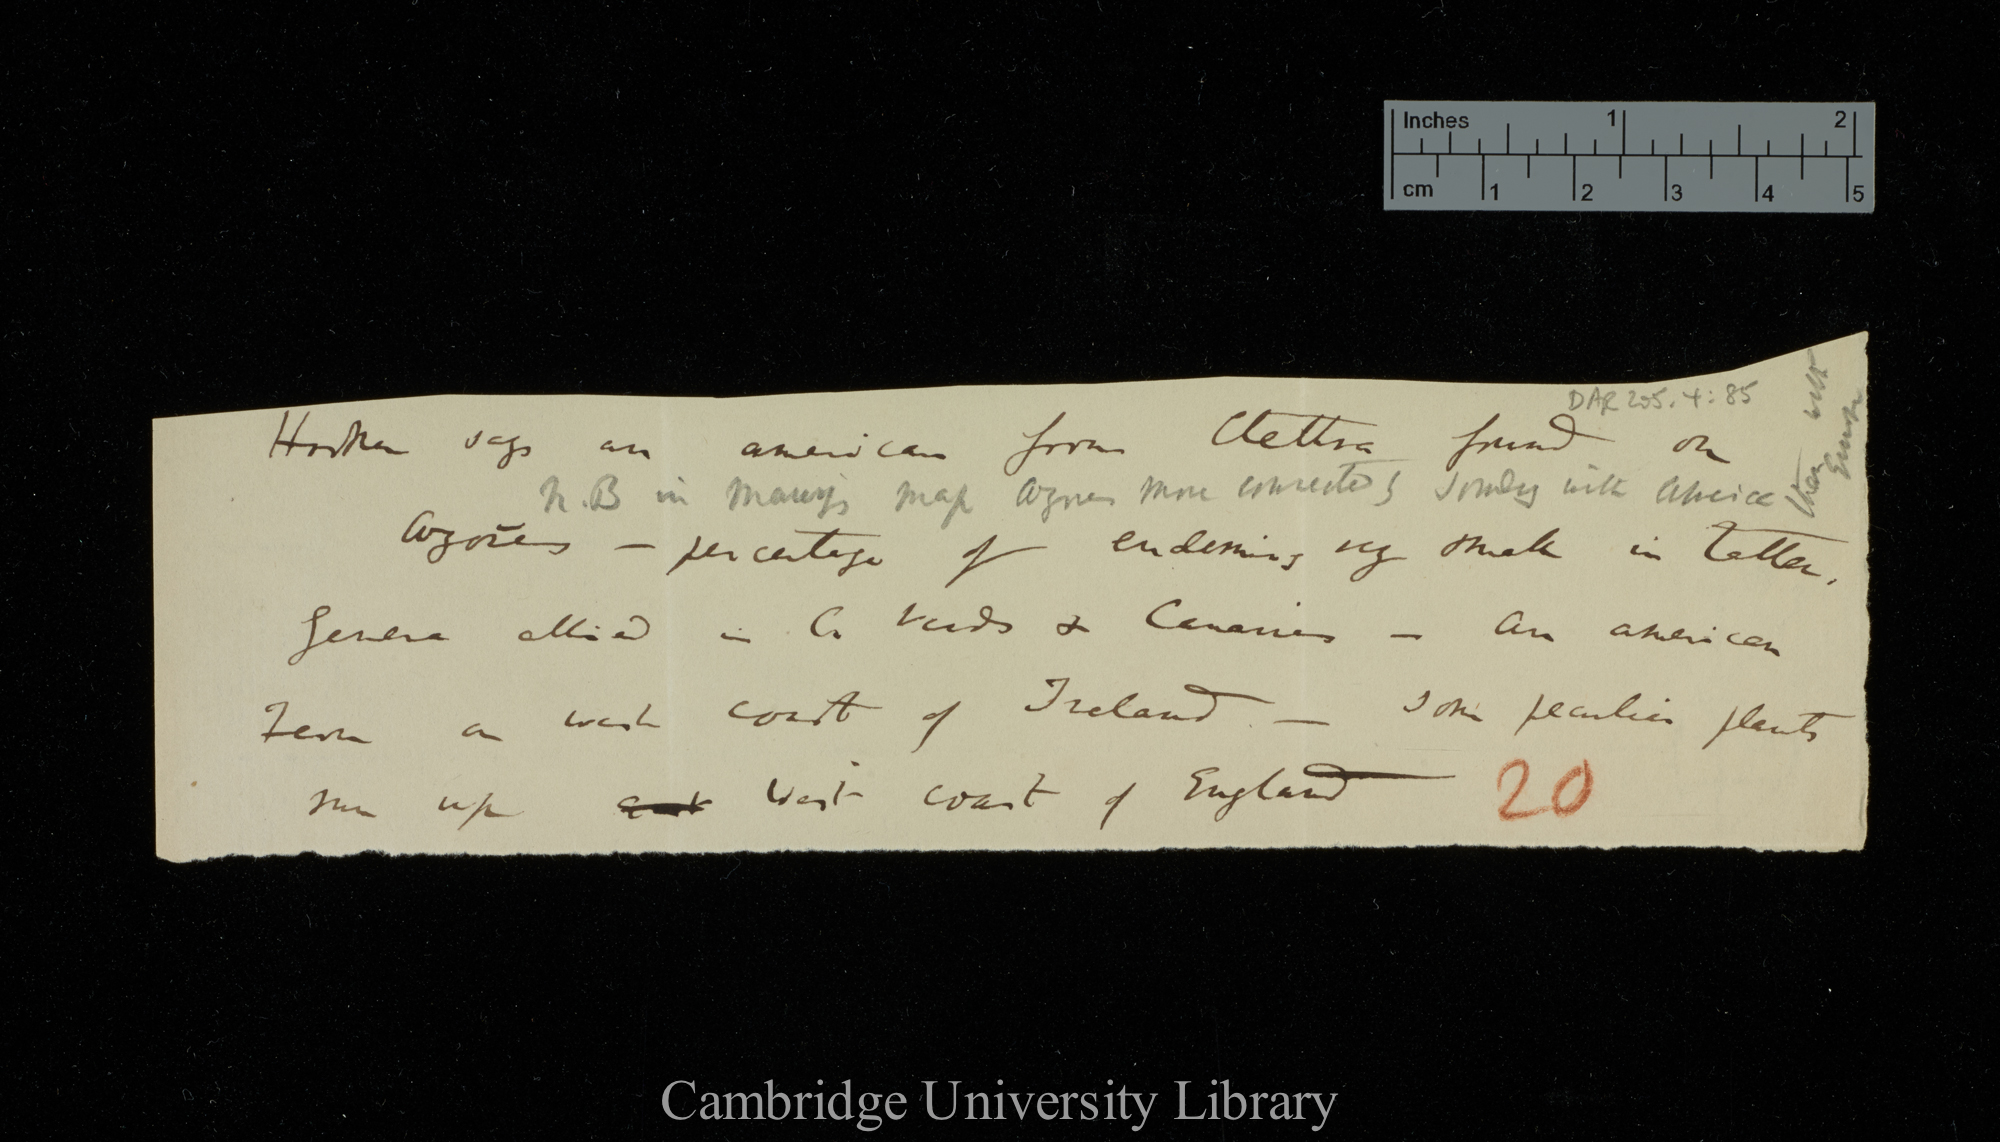 Inches 1 2
cm 1 2 3 4 5
DAR 205.4:85
Hooker says an american form Clethra found on
N.B in Maury's map Azores more connected by soundgs with Africa
than with Europe
Azores — percentage of endemism very small in latter.
Genera allied in C. Verds & Canaries — An american
Fern on west coast of Ireland — some peculiar plants
run up west coast of England
20
Cambridge University Library